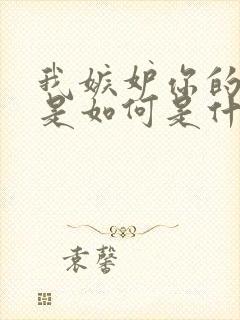 我嫉妒你的
是如何是什
袁馨